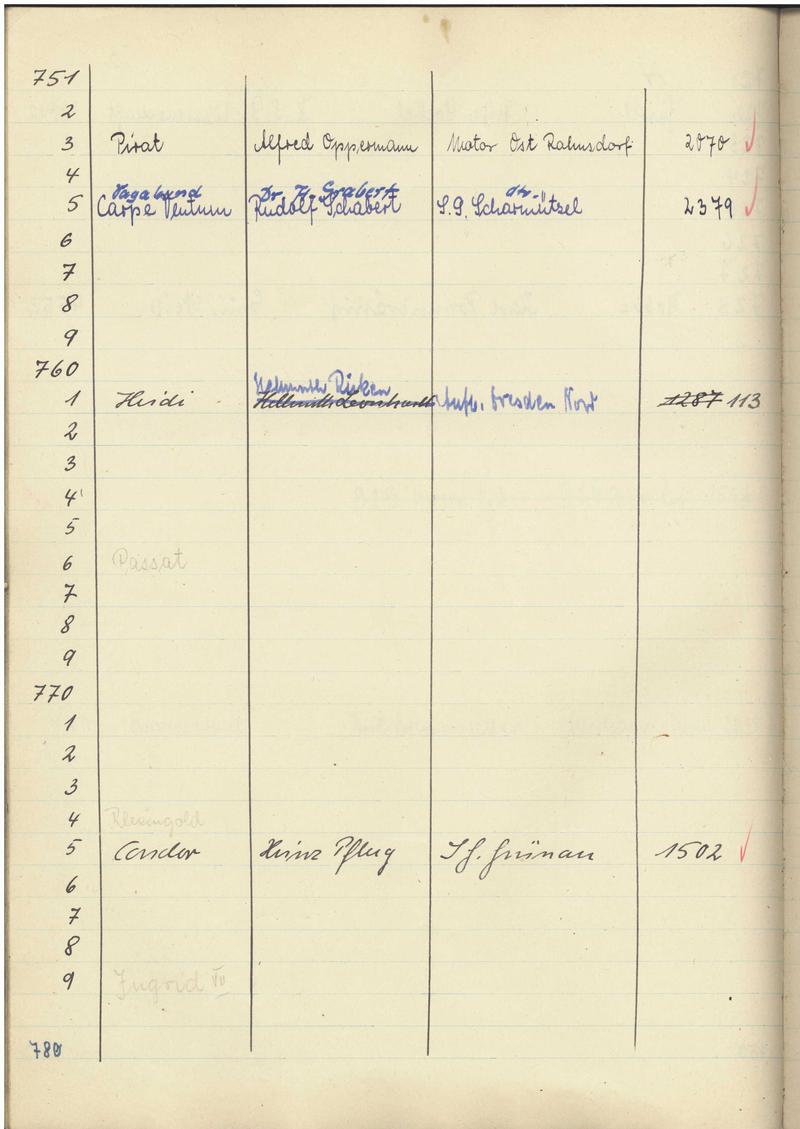 751
2
3 Pirat Alfred Oppermann Motor Ost Rahnsdorf 2070
4
Vagabund Dr. H. Grabert dto.
5 Carpe Ventum Rudolf Schabert S.G. Scharmützel 2379
6
7
8
9
760
Helmuth Rieken
1 Heidi Aufb. Dresden Nord 1287 113
2
3
4
5
6 Passat
7
8
9
770
1
2
3
4 Rheingold
5 Condor Heinz Pflug SG. Grünau 1502
6
7
8
9 Ingrid VI
780